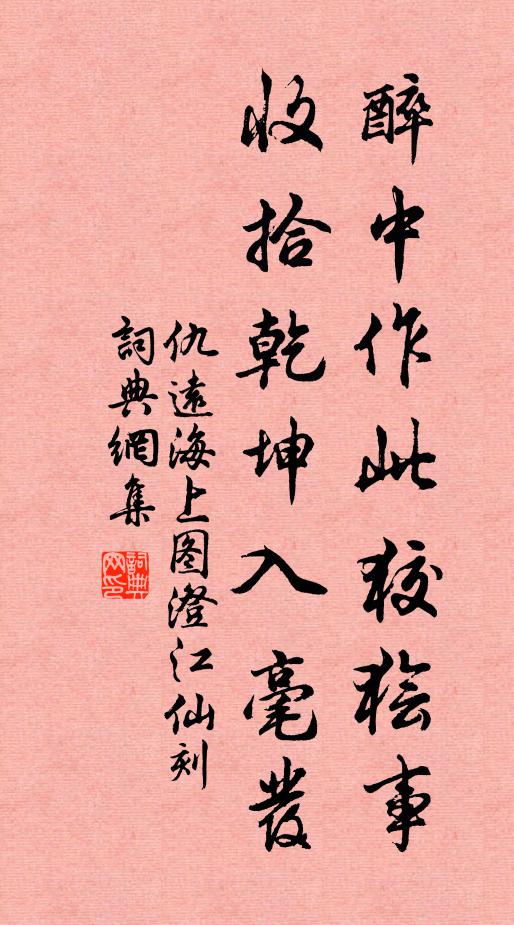 醉中作此狡獪事
收拾乾坤入毫發
仇遠海上图澄江仙刻
詞典網集
詞典網印